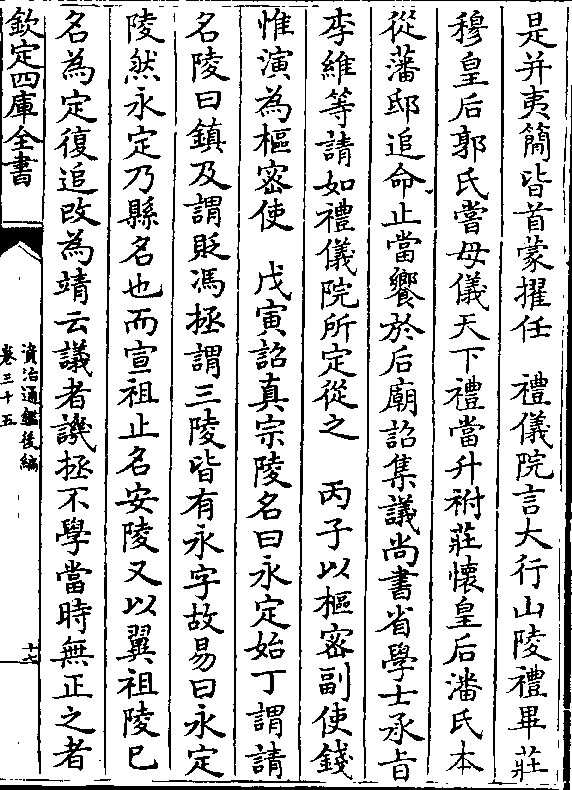 是并夷簡皆首蒙擢任　禮儀院言大行山陵禮畢莊
穆皇后郭氏嘗母儀天下禮當升祔莊懷皇后潘氏本
從藩邸追命止當饗於后廟詔集議尚書省學士承旨
李維等請如禮儀院所定從之　丙子以樞密副使錢
惟演為樞密使　戊寅詔真宗陵名曰永定始丁謂請
名陵曰鎮及謂貶馮拯謂三陵皆有永字故易曰永定
陵然永定乃縣名也而宣祖止名安陵又以翼祖陵已
名為定復追改為靖云議者譏拯不學當時無正之者
欽定四庫全書
資治通鑑後編
卷三十五
十七